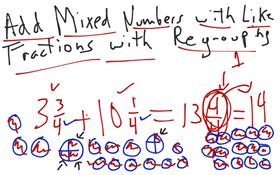 Add Mixed Numbers with Like
Fractions with Regrouping
1
3 3/4 + 10 1/4 = 13 4/4 = 14